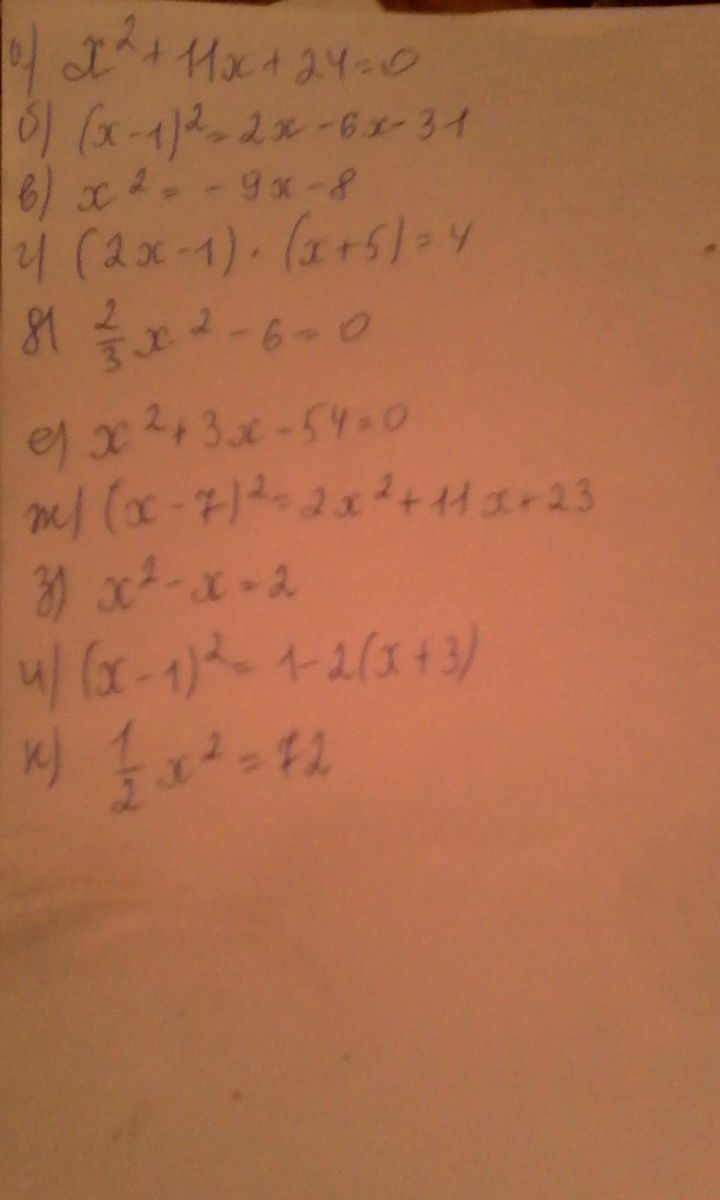 а) x² + 11x + 24 = 0
б) (x - 1)² = 2x - 6x - 31
в) x² = - 9x - 8
г) (2x - 1) · (x + 5) = 4
д) 2/3 x² - 6 = 0
е) x² + 3x - 54 = 0
ж) (x - 7)² = 2x² + 11x + 23
з) x² - x = 2
и) (x - 1)² = 1 - 2(x + 3)
к) 1/2 x² = 72